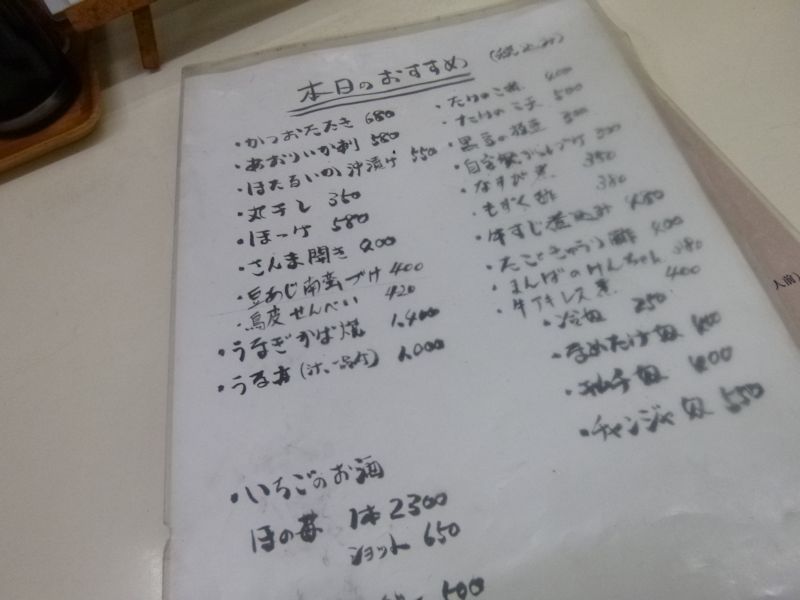 本日のおすすめ (税込み)
・かつおたたき 680
・あおりいか刺 580
・ほたるいか沖漬け 550
・丸干し 350
・ほっけ 580
・さんま開き 400
・豆あじ南蛮づけ 400
・鳥皮せんべい 420
・うなぎかば焼 1,400
・うな丼 1,000
・たけのこ 400
・たけのこ天 500
・黒豆の枝豆 300
・なすび煮 350
・もずく酢 380
・牛すじ煮込み 480
・たこときゅうり酢 400
・まんばのけんちゃん 380
・牛アキレス煮 400
・冷奴 250
・なめたけ奴 400
・キムチ奴 400
・チャンジャ奴 550
・いちごのお酒
ほの苺 1本 2300
ショット 650
500
人前)